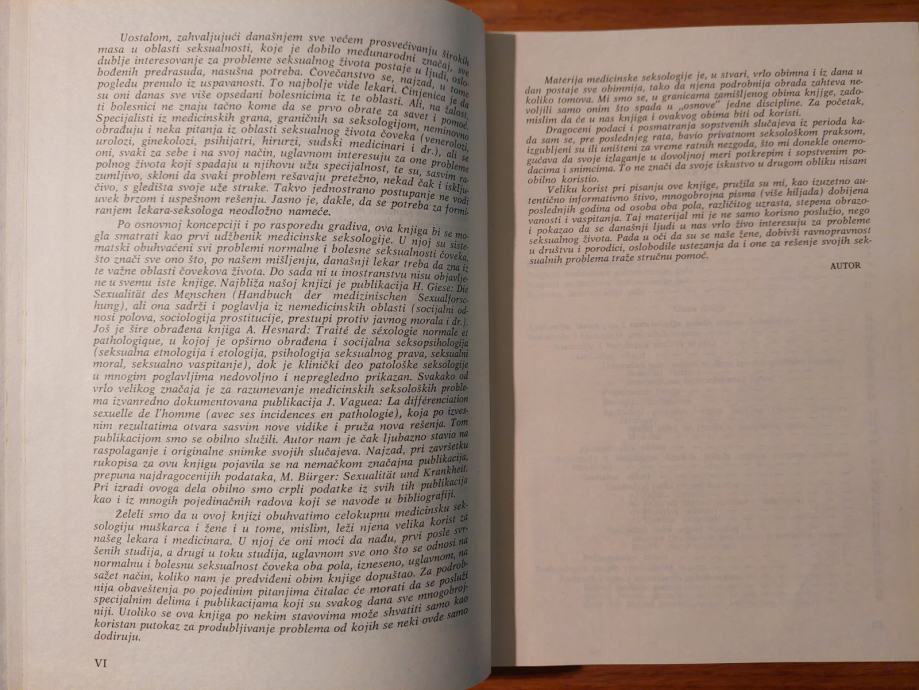 Uostalom, zahvaljujući današnjem sve većem prosvećivanju širokih
masa u oblasti seksualnosti, koje je dobilo međunarodni značaj, sve
dublje interesovanje za probleme seksualnog života postaje u ljudi, oslo-
bođenih predrasuda, nasušna potreba. Čovečanstvo se, najzad, u tome
pogledu prenulo iz uspavanosti. To najbolje vide lekari. Činjenica je da
su oni danas sve više opsedani bolesnicima iz te oblasti. Ali, na žalost,
ti bolesnici ne znaju tačno kome da se prvo obrate za savet i pomoć.
Specijalisti iz medicinskih grana, graničnih sa seksologijom, neminovno
obrađuju i neka pitanja iz oblasti seksualnog života čoveka (venerolozi,
urolozi, ginekolozi, psihijatri, hirurzi, sudski medicinari i dr.), ali se
oni, svaki za sebe i na svoj način, uglavnom interesuju za one probleme
polnog života koji spadaju u njihovu užu specijalnost, te su, sasvim ra-
zumljivo, skloni da svaki problem rešavaju pretežno, nekad čak i isklju-
čivo, s gledišta svoje uže struke. Takvo jednostrano postupanje ne vodi
uvek brzom i uspešnom rešenju. Jasno je, dakle, da se potreba za formi-
ranjem lekara-seksologa neodložno nameće.
Po osnovnoj koncepciji i po rasporedu gradiva, ova knjiga bi se mo-
gla smatrati kao prvi udžbenik medicinske seksologije. U njoj su siste-
matski obuhvaćeni svi problemi normalne i bolesne seksualnosti čoveka,
što znači sve ono što, po našem mišljenju, današnji lekar treba da zna iz
te važne oblasti čovekova života. Do sada ni u inostranstvu nisu objavlje-
ne u svemu iste knjige. Najbliža našoj knjizi je publikacija H. Giese: Die
Sexualität des Menschen (Handbuch der medizinischen Sexualforsc-
hung), ali ona sadrži i poglavlja iz nemedicinskih oblasti (socijalni od-
nosi polova, sociologija prostitucije, prestupi protiv javnog morala i dr.).
Još je šire obrađena knjiga A. Hesnard: Traité de séxologie normale et
pathologique, u kojoj je opširno obrađena i socijalna seksopsihologija
(seksualna etnologija i etologija, psihologija seksualnog prava, seksualni
moral, seksualno vaspitanje), dok je klinički deo patološke seksologije
u mnogim poglavljima nedovoljno i nepregledno prikazan. Svakako od
vrlo velikog značaja je za razumevanje medicinskih seksoloških proble-
ma izvanredno dokumentovana publikacija J. Vaguea: La différenciation
sexuelle de l'homme (avec ses incidences en pathologie), koja po izves-
nim rezultatima otvara sasvim nove vidike i pruža nova rešenja. Tom
publikacijom smo se obilno služili. Autor nam je čak ljubazno stavio na
raspolaganje i originalne snimke svojih slučajeva. Najzad, pri završetku
rukopisa za ovu knjigu pojavila se na nemačkom značajna publikacija,
prepuna najdragocenijih podataka, M. Bürger: Sexualität und Krankheit.
Pri izradi ovoga dela obilno smo crpli podatke iz svih tih publikacija
kao i iz mnogih pojedinačnih radova koji se navode u bibliografiji.
Želeli smo da u ovoj knjizi obuhvatimo celokupnu medicinsku sek-
sologiju muškarca i žene i u tome, mislim, leži njena velika korist za
našeg lekara i medicinara. U njoj će oni moći da nađu, prvi posle svr-
šenih studija, a drugi u toku studija, uglavnom sve ono što se odnosi na
normalnu i bolesnu seksualnost čoveka oba pola, izneseno, uglavnom, na
sažet način, koliko nam je predviđeni obim knjige dopuštao. Za podrob-
nija obaveštenja po pojedinim pitanjima čitalac će morati da se posluži
specijalnim delima i publikacijama koji su svakog dana sve mnogobroj-
niji. Utoliko se ova knjiga po nekim stavovima može shvatiti samo kao
koristan putokaz za produbljivanje problema od kojih se neki ovde samo
dodiruju.
VI
Materija medicinske seksologije je, u stvari, vrlo obimna i iz dana u
dan postaje sve obimnija, tako da njena podrobnija obrada zahteva ne-
koliko tomova. Mi smo se, u granicama zamišljenog obima knjige, zado-
voljili samo onim što spada u „osnove" jedne discipline. Za početak,
mislim da će u nas knjiga i ovakvog obima biti od koristi.
Dragoceni podaci i posmatranja sopstvenih slučajeva iz perioda ka-
da sam se, pre poslednjeg rata, bavio privatnom seksološkom praksom,
izgubljeni su ili uništeni za vreme ratnih nezgoda, što mi donekle onemo-
gućava da svoje izlaganje u dovoljnoj meri potkrepim i sopstvenim po-
dacima i snimcima. To ne znači da svoje iskustvo u drugom obliku nisam
obilno koristio.
Veliku korist pri pisanju ove knjige, pružila su mi, kao izuzetno au-
tentično informativno štivo, mnogobrojna pisma (više hiljada) dobijena
poslednjih godina od osoba oba pola, različitog uzrasta, stepena obrazo-
vanosti i vaspitanja. Taj materijal mi je ne samo korisno poslužio, nego
i pokazao da se današnji ljudi u nas vrlo živo interesuju za probleme
seksualnog života. Pada u oči da su se naše žene, dobivši ravnopravnost
u društvu i porodici, oslobodile ustezanja da i one za rešenje svojih sek-
sualnih problema traže stručnu pomoć.
AUTOR